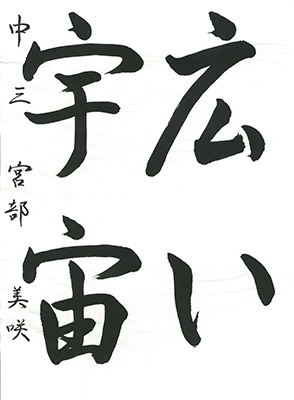 広い
宇宙
中三 宮部 美咲